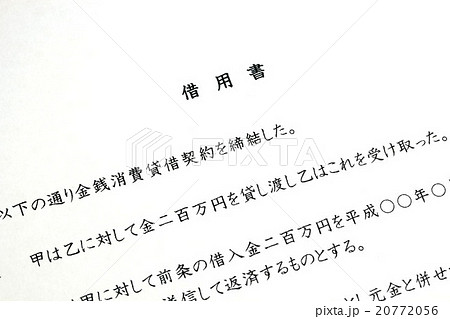 借用書
以下の通り金銭消費貸借契約を締結した。
甲は乙に対して金二百万円を貸し渡し乙はこれを受け取った。
甲に対して前条の借入金二百万円を平成〇〇年〇
送信して返済するものとする。
し元金と併せ
PIXTA
pixta.jp - 20772056